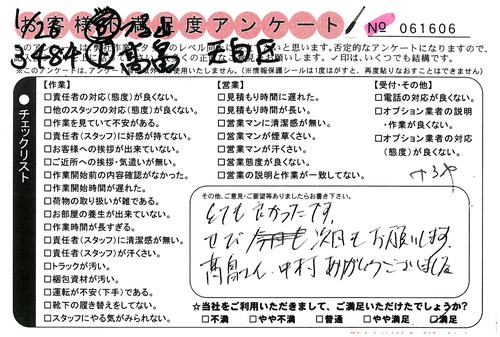 お客様の満足度アンケート
№ 061606
1/28
3484
※このアンケートは、
✓印は、いくつでも結構です。
チェックリスト
【作業】
□責任者の対応(態度)が良くない。
□他のスタッフの対応(態度)が良くない。
□作業を見ていて不安がある。
□責任者(スタッフ)に好感が持てない。
□お客様への挨拶が出来ていない。
□ご近所への挨拶・気遣いが無い。
□作業開始前の内容確認がなかった。
□作業開始時間が遅れた。
□荷物の取り扱いが雑である。
□お部屋の養生が出来ていない。
□作業時間が長すぎる。
□責任者(スタッフ)に清潔感が無い。
□責任者(スタッフ)が汗くさい。
□トラックが汚い。
□梱包資材が汚い。
□運転が不安(下手)である。
□靴下の履き替えをしてない。
□スタッフにやる気がみられない。
【営業】
□見積もり時間に遅れた。
□見積もり時間が長い。
□営業マンに清潔感が無い。
□営業マンが煙草くさい。
□営業マンが汗くさい。
□営業態度が良くない。
□営業の説明と作業が一致してない。
【受付・その他】
□電話の対応が良くない。
□オプション業者の説明
・作業が良くない。
□オプション業者の対応
(態度)が良くない。
その他、ご意見・ご要望等ありましたらお書き下さい。
とてもよかったです。
ぜひ 次回もお願いします。
高畠さん、中村 ありがとうございました
☆当社をご利用いただきまして、ご満足いただけたでしょうか?
□不満 □やや不満 □普通 □やや満足 ☑満足